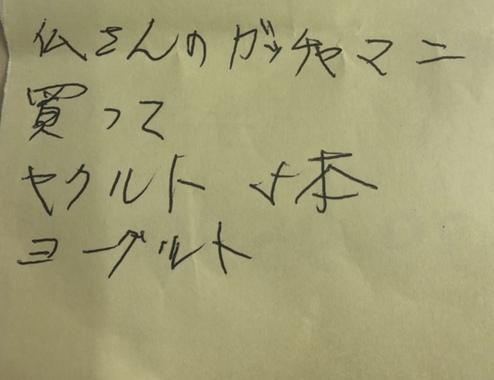 仏さんのガッチャマン
買って
ヤクルト 4本
ヨーグルト